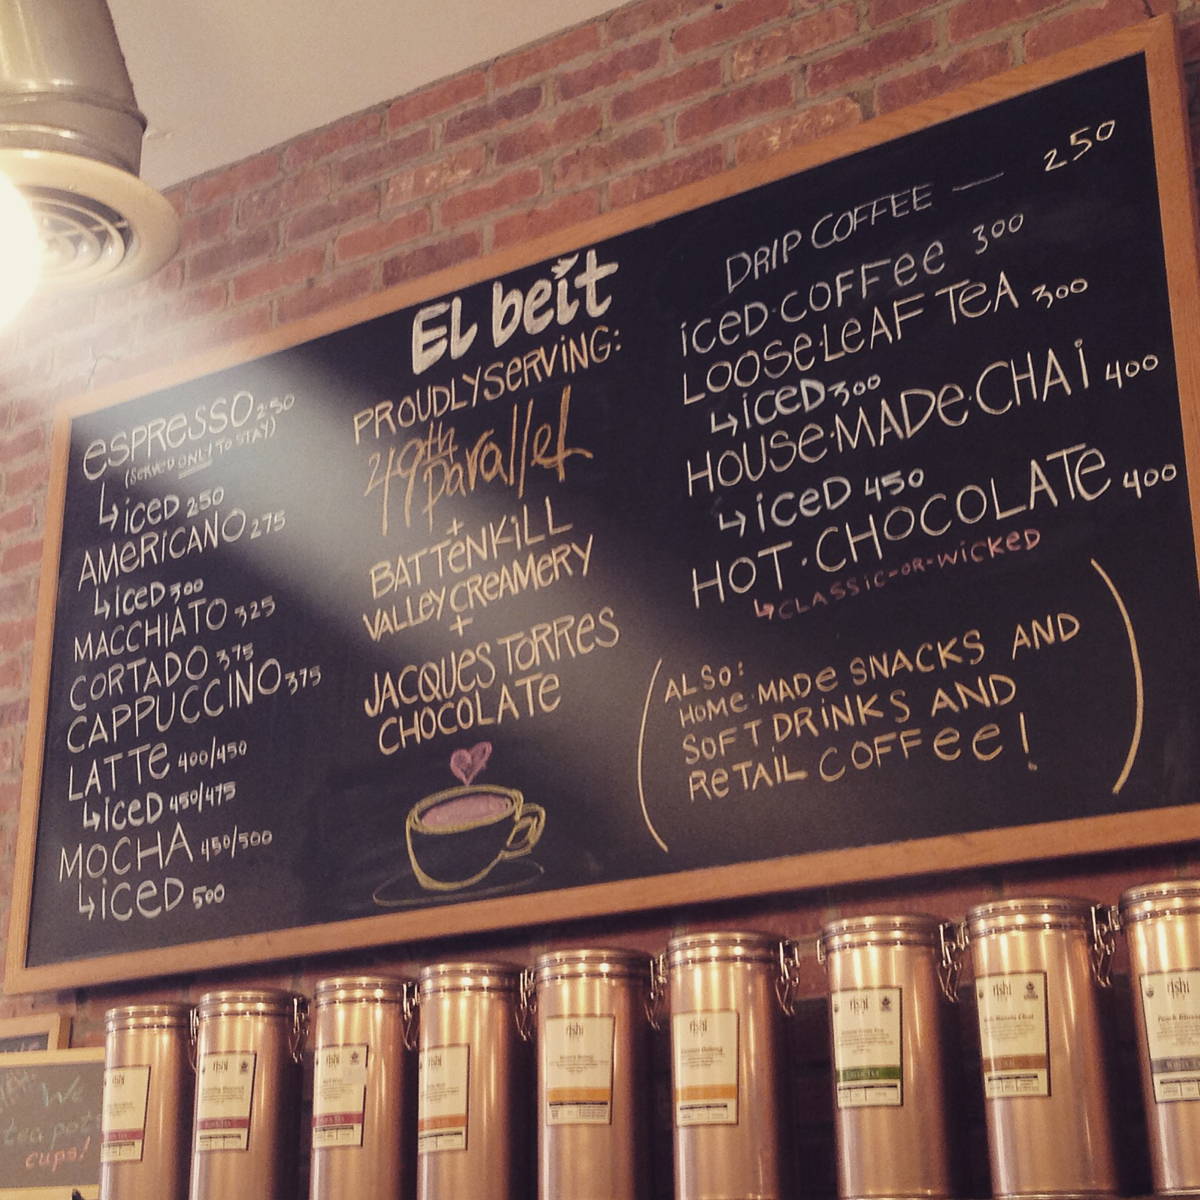 ESPRESSO 250
(SERVED ONLY TO STAY)
↳ICED 250
AMERICANO 275
↳ICED 300
MACCHIATO 325
CORTADO 375
CAPPUCCINO 375
LATTE 400/450
↳ICED 450/475
MOCHA 450/500
↳ICED 500
EL beit
PROUDLY SERVING:
49th
parallel
+
BATTENKILL
VALLEY CREAMERY
+
JACQUES TORRES
CHOCOLATE
DRIP COFFEE — 250
ICED·COFFEE 300
LOOSE·LEAF TEA 300
↳ICED 300
HOUSE·MADE·CHAI 400
↳ICED 450
HOT·CHOCOLATE 400
↳CLASSIC-OR-WICKED
(ALSO:
HOME·MADE SNACKS AND
SOFT DRINKS AND
RETAIL COFFEE!)
We
tea pot
cups!
rishi
rishi
rishi
rishi
rishi
rishi
rishi
GREEN TEA
rishi
rishi